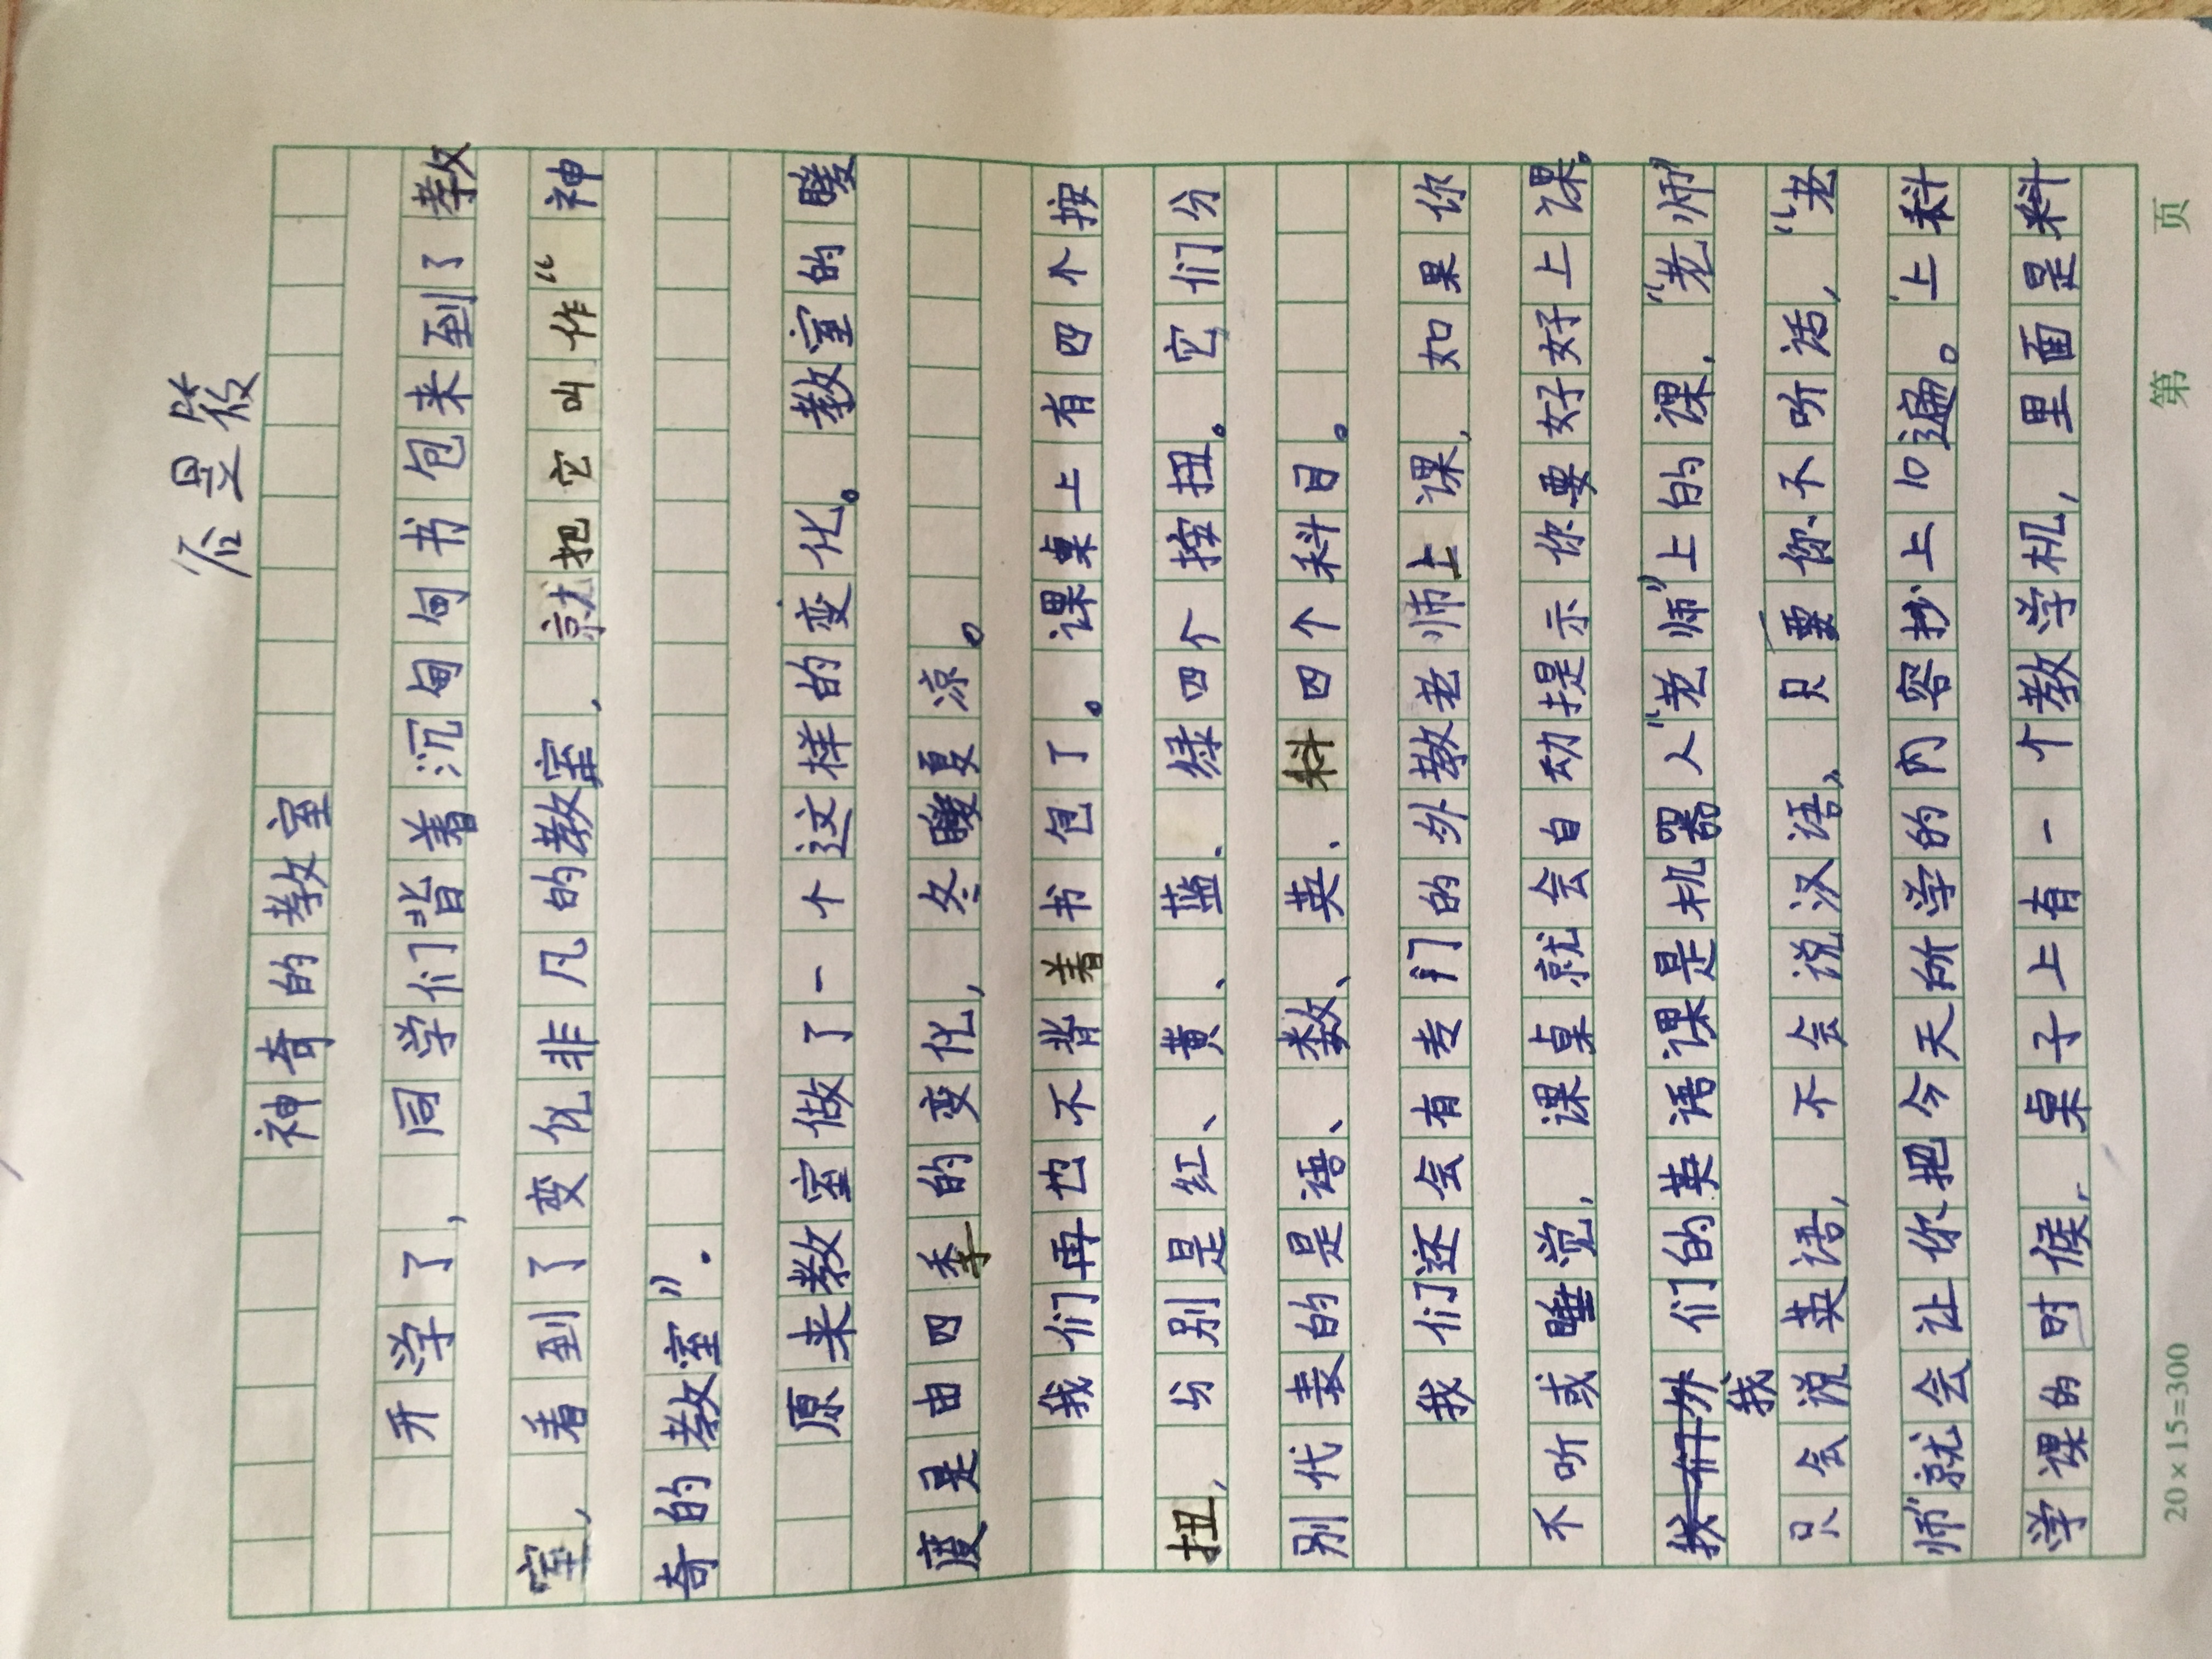 神奇的教室
开学了，同学们背着沉甸甸书包来到了教
室，看到了变化非凡的教室，就把它叫作“神
奇的教室”.
原来教室做了一个这样的变化。教室的暖
度是由四季的变化，冬暖夏凉。
我们再也不背着书包了。课桌上有四个按
扭，分别是红、黄、蓝、绿四个按扭。它们分
别代表的是语、数、英、科四个科目。
我们还会有专门的外教老师上课，如果你
不听或睡觉，课桌就会自动提示你要好好上课。
我们的英语课是机器人“老师”上的课，“老师”
只会说英语，不会说汉语。只要你不听话，“老
师”就会让你把今天所学的内容抄上10遍。上科
学课的时候，桌子上有一个教学机，里面是料
20×15=300 第 页